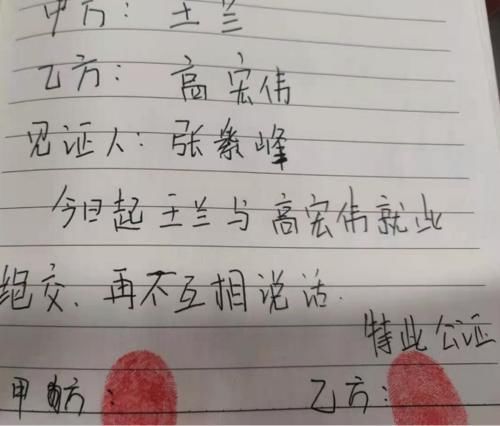 甲方：王兰
乙方：高宏伟
见证人：张紫峰
今日起王兰与高宏伟就此
绝交，再不互相说话.
特此公证
甲方：乙方：